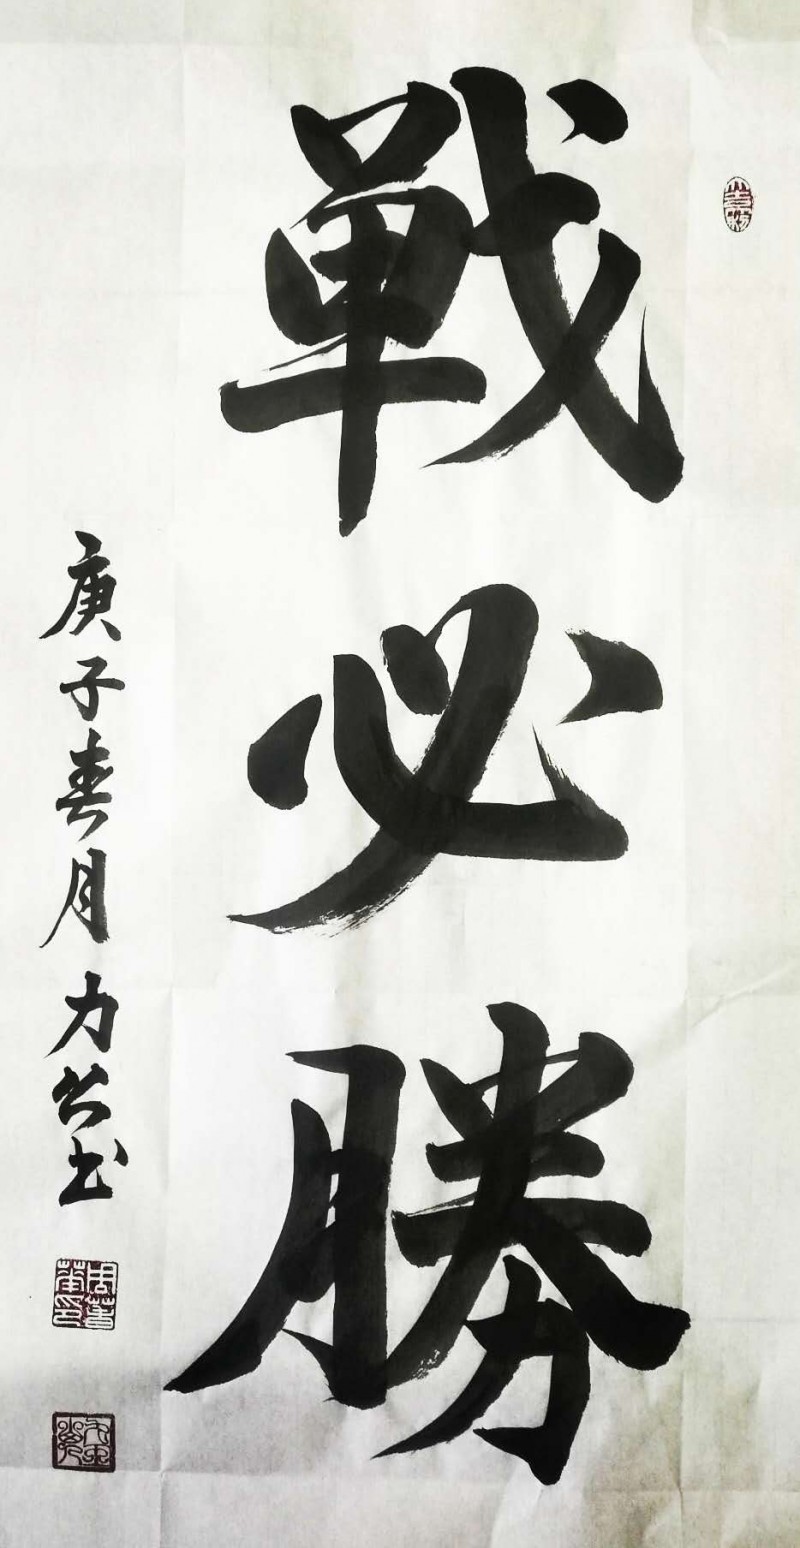 戦必勝
庚子春月力公书